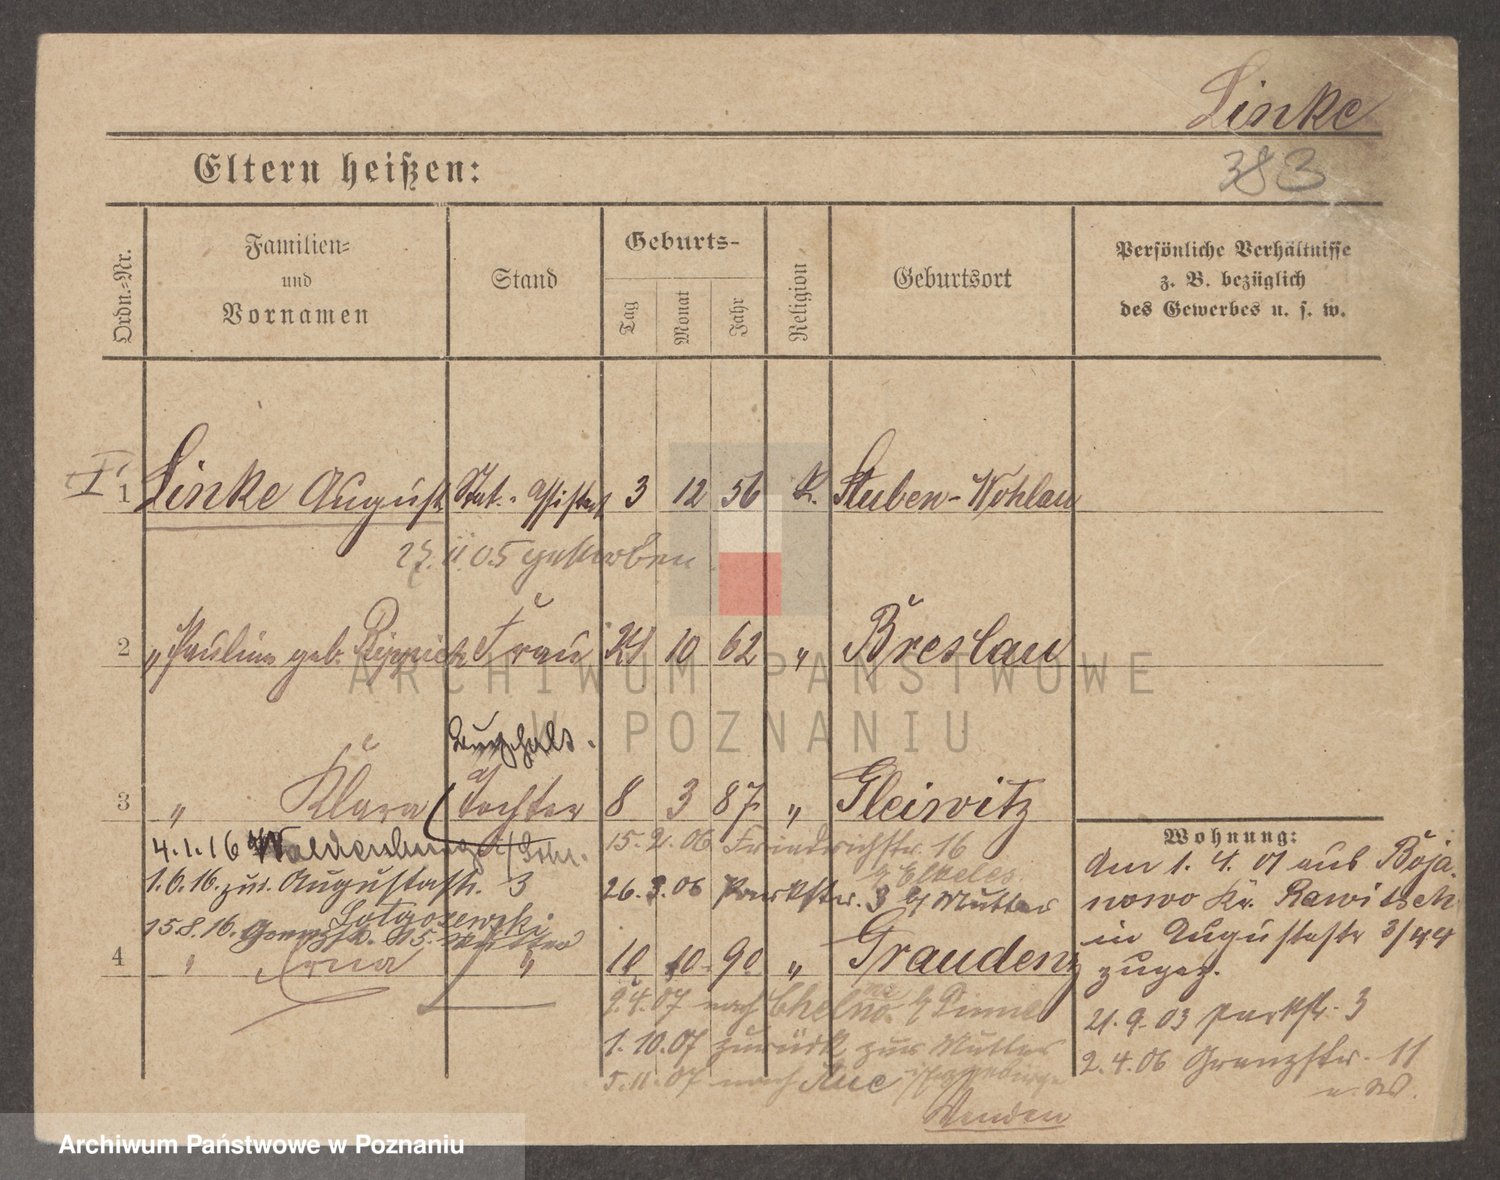 Linke
383
Eltern heißen:
Ordn.-Nr.
Familien-
und
Vornamen
Stand
Geburts-
Tag
Monat
Jahr
Religion
Geburtsort
Persönliche Verhältnisse
z. B. bezüglich
des Gewerbes u. s. w.
I 1 Linke August Stat.-Assistent 3 12 56 K. Steuben-Wohlau
27.11.05 gestorben
2 " Pauline geb. Frau 10 62 " Breslau
3 " Klara Tochter 8 3 87 " Gleiwitz
15.2.06 Friedrichstr. 16
4.1.16 Waldenburg
1.6.16. zur. Augustastr. 3
26.3.06 Parkstr. 3 b/ Mutter
15.8.16.
4 " Erna " 10 10 90 " Graudenz
9.4.07 nach Chelmno b/ Pinne
1.10.07 zurück zur Mutter
5.11.07 nach Aue i/Erzgebirge
Wenden
Wohnung:
Am 1. 4. 01 aus Boja-
nowo Kr. Rawitsch
in Augustastr 3/44
zugez.
21.9.03 Parkstr. 3
2.4.06 Grenzstr. 11
ARCHIWUM PAŃSTWOWE
W POZNANIU
Archiwum Państwowe w Poznaniu